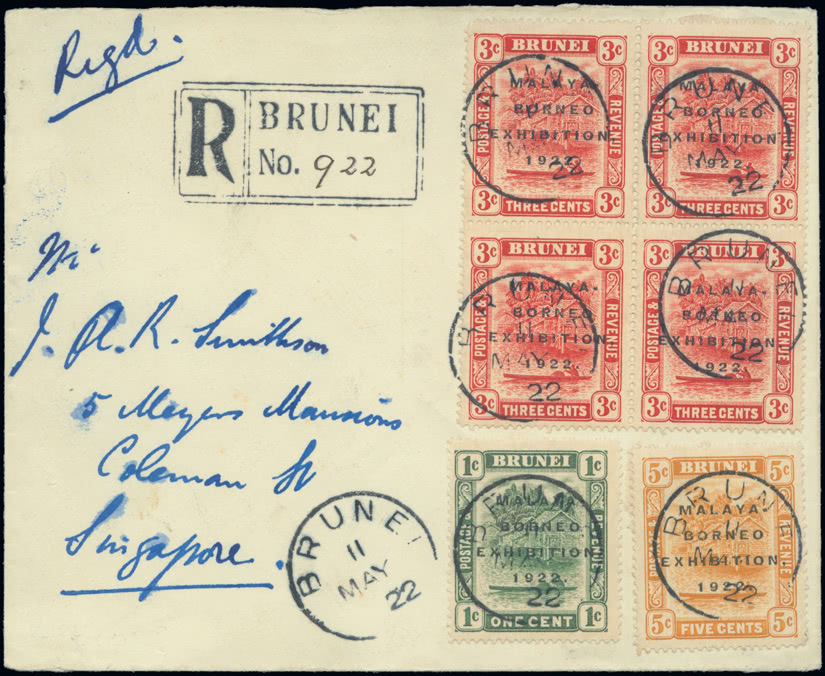 Regd.
R BRUNEI
No. 922
Mr
J. A. R. Smithson
5 Meyers Mansions
Coleman St
Singapore.
BRUNEI
11
MAY
22
3c BRUNEI 3c
POSTAGE & REVENUE
MALAYA-
BORNEO
EXHIBITION.
1922.
BRUNEI
11
MAY
22
3c THREE CENTS 3c
3c BRUNEI 3c
POSTAGE & REVENUE
MALAYA-
BORNEO
EXHIBITION.
1922.
BRUNEI
11
MAY
22
3c THREE CENTS 3c
3c BRUNEI 3c
POSTAGE & REVENUE
MALAYA-
BORNEO
EXHIBITION.
1922.
BRUNEI
11
MAY
22
3c THREE CENTS 3c
3c BRUNEI 3c
POSTAGE & REVENUE
MALAYA-
BORNEO
EXHIBITION.
1922.
BRUNEI
11
22
3c THREE CENTS 3c
1c BRUNEI 1c
POSTAGE & REVENUE
MALAYA-
BORNEO
EXHIBITION.
1922.
BRUNEI
11
MAY
22
1c ONE CENT 1c
5c BRUNEI 5c
POSTAGE & REVENUE
MALAYA-
BORNEO
EXHIBITION.
1922.
BRUNEI
11
22
5c FIVE CENTS 5c